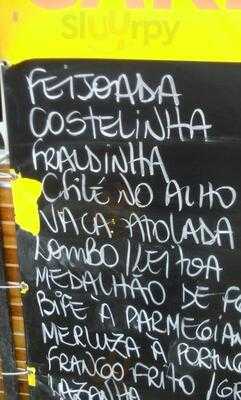 Sluurpy
FEIJOADA
COSTELINHA
FRALDINHA
FILÉ NO ALHO
VACA ATOLADA
LOMBO/LEITOA
MEDALHÃO DE
BIFE À PARMEGIAN
MERLUZA À PORTUG
FRANGO FRITO
LAZANHA